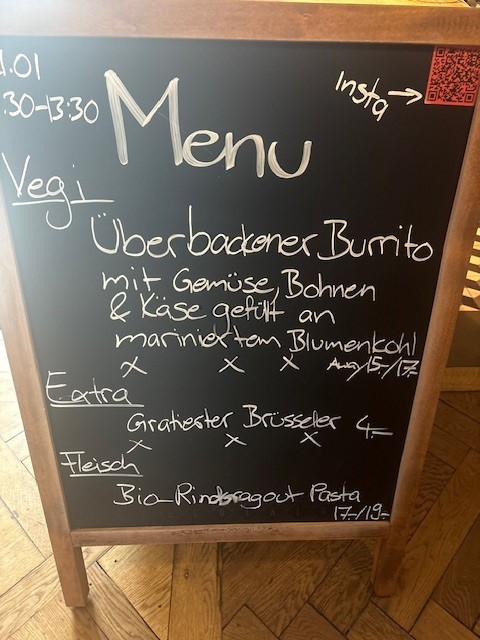 1.01
:30-13:30
Insta →
Menu
Vegi
Überbackener Burrito
mit Gemüse, Bohnen
& Käse gefüllt an
mariniertem Blumenkohl
x x x
Away 15.-/17.-
Extra
Gratierter Brüsseler 4.-
x x x
Fleisch
Bio-Rindsragout Pasta
17.-/19.-